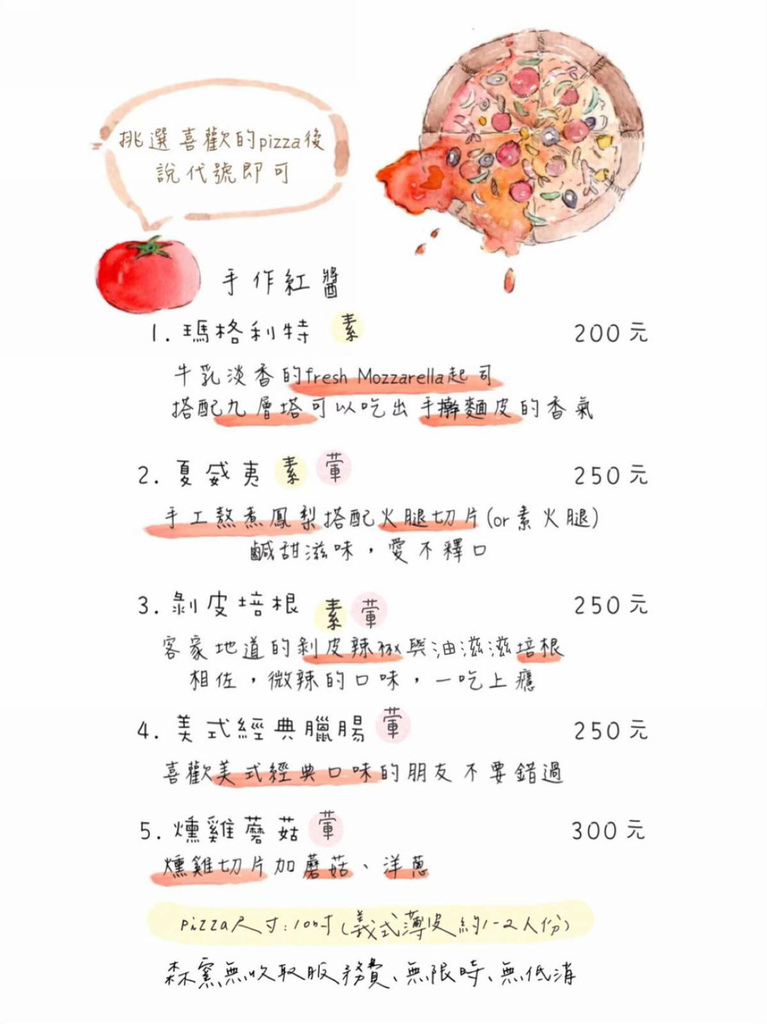 挑選喜歡的pizza後
說代號即可
手作紅醬
1. 瑪格利特 素 200元
牛乳淡香的fresh Mozzarella起司
搭配九層塔可以吃出手擀麵皮的香氣
2. 夏威夷 素 葷 250元
手工熬煮鳳梨搭配火腿切片(or素火腿)
鹹甜滋味，愛不釋口
3. 剝皮培根 素 葷 250元
客家地道的剝皮辣椒與油滋滋培根
相佐，微辣的口味，一吃上癮
4. 美式經典臘腸 葷 250元
喜歡美式經典口味的朋友不要錯過
5. 燻雞蘑菇 葷 300元
燻雞切片加蘑菇、洋蔥
pizza尺寸:10吋(義式薄皮約1-2人份)
森窯無收取服務費、無限時、無低消